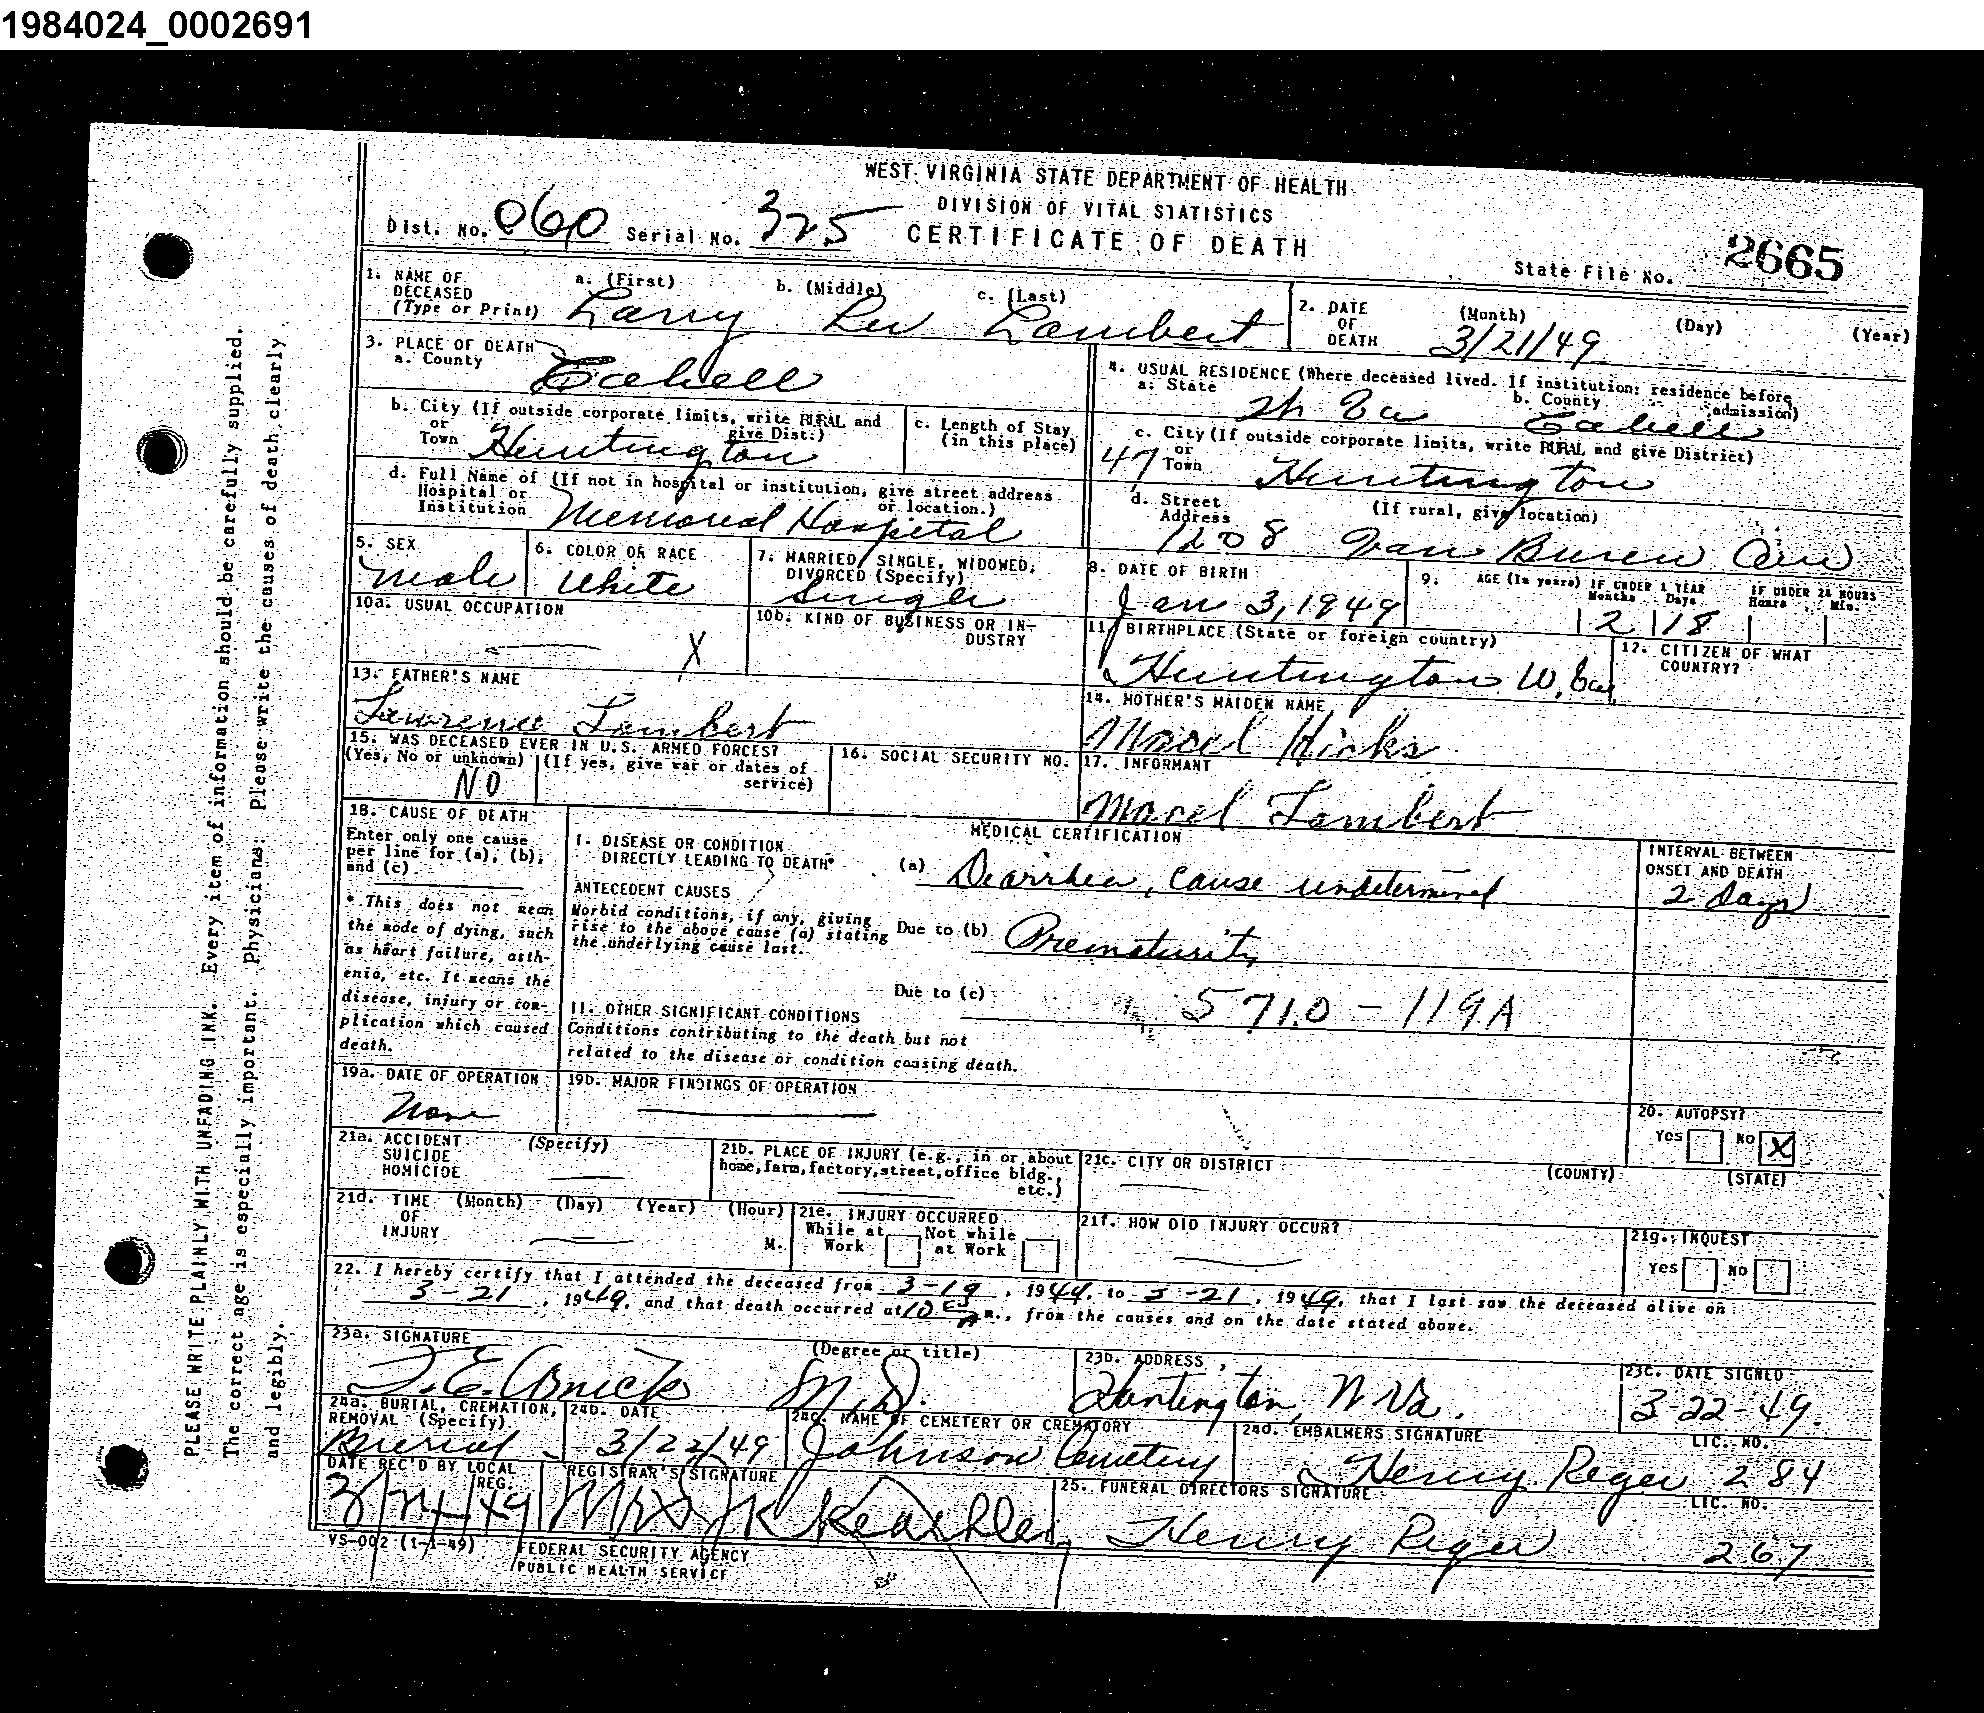 1984024_0002691
WEST VIRGINIA STATE DEPARTMENT OF HEALTH
DIVISION OF VITAL STATISTICS
Dist. No. 060 Serial No. 325 CERTIFICATE OF DEATH
State File No. 2665
1. NAME OF DECEASED (Type or Print) a. (First) b. (Middle) c. (Last)
Larry Lee Lambert
2. DATE OF DEATH (Month) (Day) (Year)
3/21/49
3. PLACE OF DEATH
a. County Cabell
b. City (If outside corporate limits, write RURAL and give Dist.)
or Town Huntington
c. Length of Stay (in this place)
d. Full Name of (If not in hospital or institution, give street address or location.)
Hospital or Institution Memorial Hospital
4. USUAL RESIDENCE (Where deceased lived. If institution: residence before admission)
a. State b. County Cabell
c. City (If outside corporate limits, write RURAL and give District)
or Town 47 Huntington
d. Street Address (If rural, give location)
1208 Van Buren
5. SEX Male
6. COLOR OR RACE White
7. MARRIED, SINGLE, WIDOWED, DIVORCED (Specify) Single
8. DATE OF BIRTH Jan 3, 1949
9. AGE (In years) IF UNDER 1 YEAR Months Days IF UNDER 24 HOURS Hours Min.
2 18
10a. USUAL OCCUPATION X
10b. KIND OF BUSINESS OR INDUSTRY
11. BIRTHPLACE (State or foreign country)
Huntington W. Va
12. CITIZEN OF WHAT COUNTRY?
13. FATHER'S NAME
Lawrence Lambert
14. MOTHER'S MAIDEN NAME
Macel Hinks
15. WAS DECEASED EVER IN U.S. ARMED FORCES?
(Yes, No or unknown) (If yes, give war or dates of service)
NO
16. SOCIAL SECURITY NO.
17. INFORMANT
Macel Lambert
18. CAUSE OF DEATH
Enter only one cause per line for (a), (b), and (c)
* This does not mean the mode of dying, such as heart failure, asthenia, etc. It means the disease, injury or complication which caused death.
MEDICAL CERTIFICATION
I. DISEASE OR CONDITION DIRECTLY LEADING TO DEATH* (a) Diarrhea, cause undetermined
INTERVAL BETWEEN ONSET AND DEATH
2 days
ANTECEDENT CAUSES
Morbid conditions, if any, giving rise to the above cause (a) stating the underlying cause last.
Due to (b) Prematurity
Due to (c)
571.0 - 119A
II. OTHER SIGNIFICANT CONDITIONS
Conditions contributing to the death but not related to the disease or condition causing death.
19a. DATE OF OPERATION None
19b. MAJOR FINDINGS OF OPERATION
20. AUTOPSY?
Yes No X
21a. ACCIDENT SUICIDE HOMICIDE (Specify)
21b. PLACE OF INJURY (e.g., in or about home, farm, factory, street, office bldg., etc.)
21c. CITY OR DISTRICT (COUNTY) (STATE)
21d. TIME OF INJURY (Month) (Day) (Year) (Hour) M.
21e. INJURY OCCURRED
While at Work Not while at Work
21f. HOW DID INJURY OCCUR?
21g. INQUEST
Yes No
22. I hereby certify that I attended the deceased from 3-19, 1949, to 3-21, 1949, that I last saw the deceased alive on
3-21, 1949, and that death occurred at 10 m., from the causes and on the date stated above.
23a. SIGNATURE (Degree or title)
M.D.
23b. ADDRESS
Huntington, W Va.
23c. DATE SIGNED
3-22-49.
24a. BURIAL, CREMATION, REMOVAL (Specify)
Burial
24b. DATE
3/22/49
24c. NAME OF CEMETERY OR CREMATORY
Johnson Cemetery
24d. EMBALMERS SIGNATURE LIC. NO.
Henry Reger 284
DATE REC'D BY LOCAL REG.
3/24/49
REGISTRAR'S SIGNATURE
25. FUNERAL DIRECTORS SIGNATURE LIC. NO.
Henry Reger 267
VS-002 (1-1-49)
FEDERAL SECURITY AGENCY
PUBLIC HEALTH SERVICE
PLEASE WRITE PLAINLY WITH UNFADING INK. Every item of information should be carefully supplied.
The correct age is especially important. Physicians: Please write the causes of death clearly
and legibly.